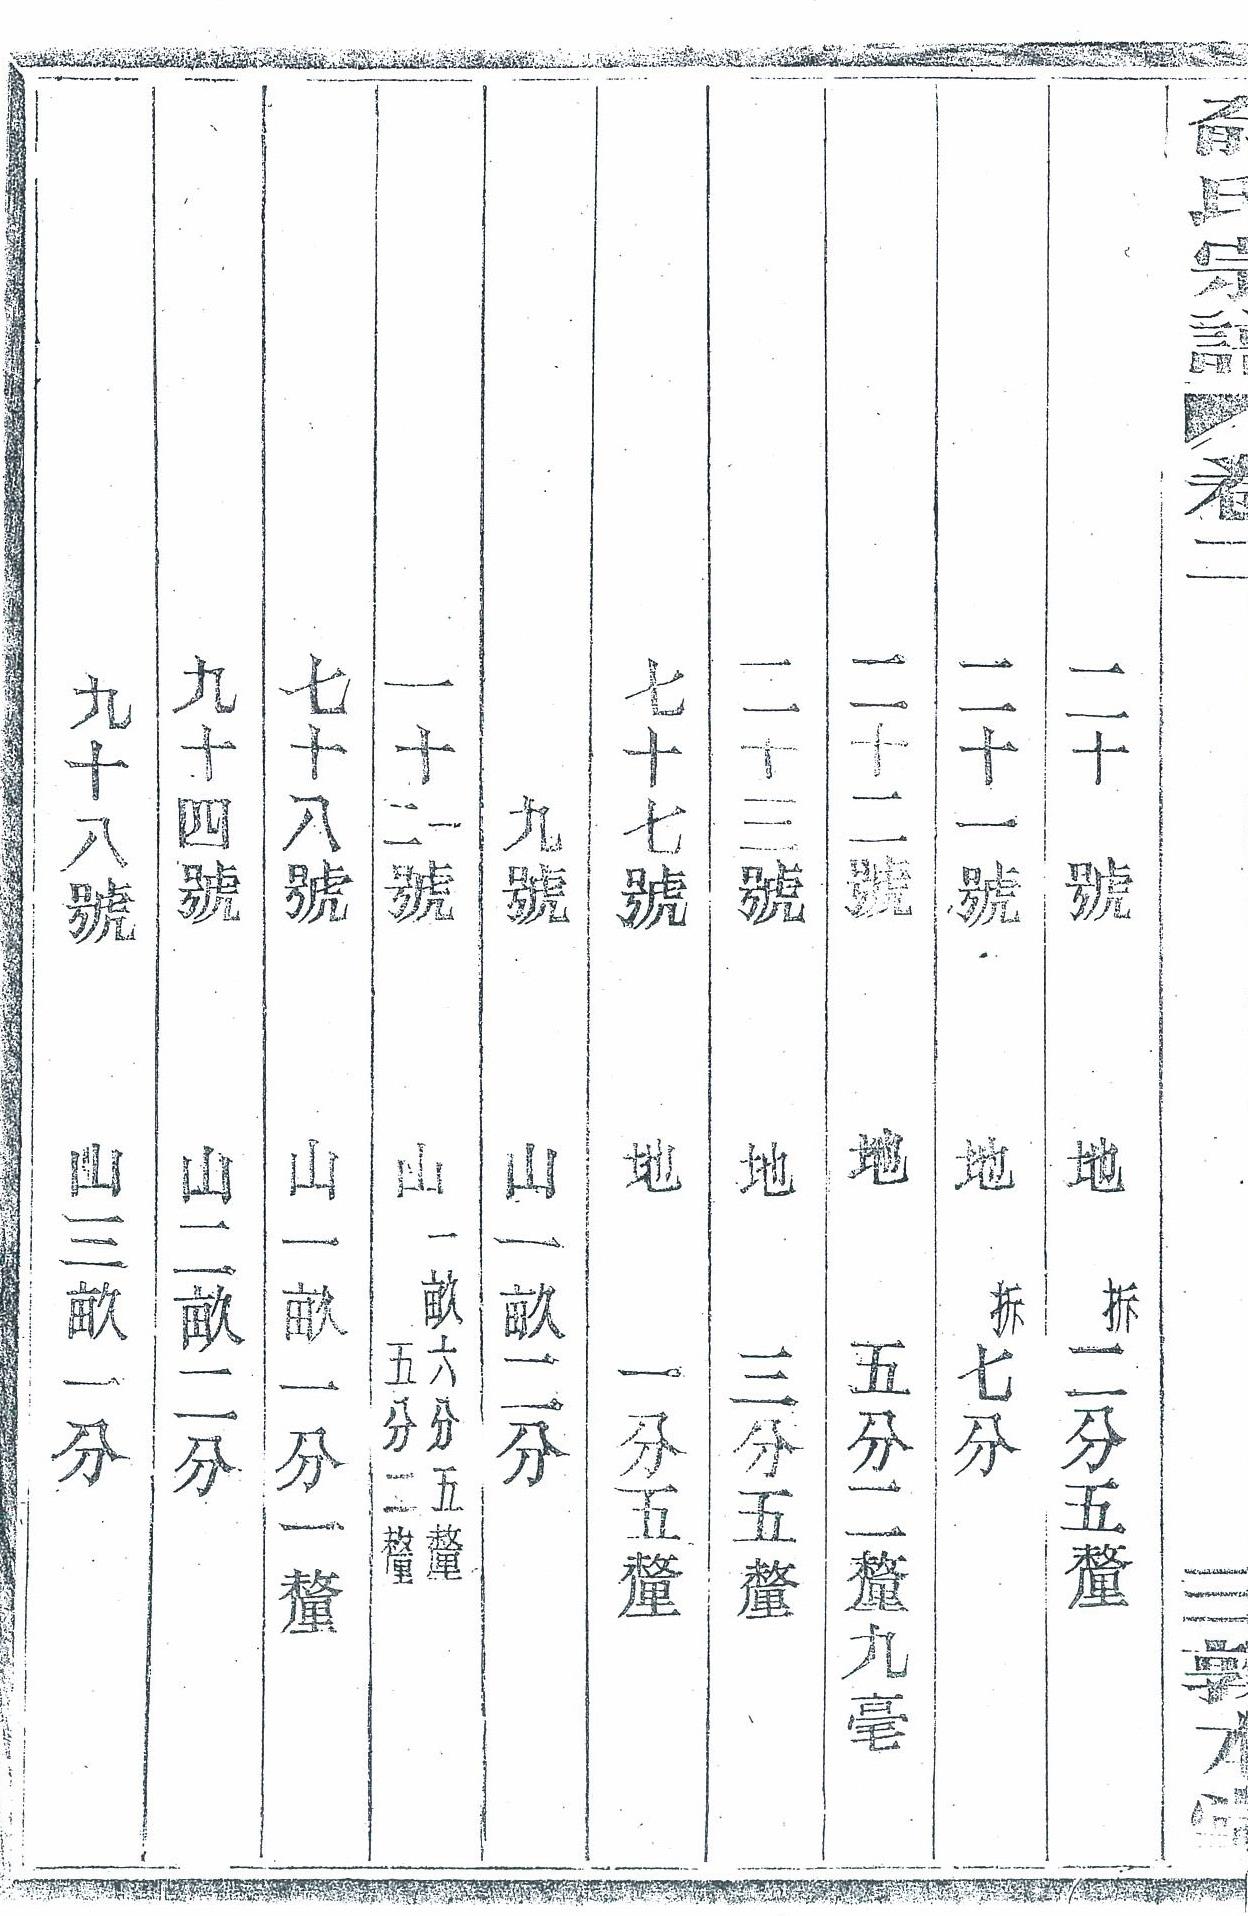 氏宗譜 卷二 三 敦本堂
二十號 地 拆二分五釐
二十一號 地 拆七分
二十二號 地 五分二釐九毫
二十三號 地 三分五釐
七十七號 地 一分五釐
九號 山一畝二分
一十一二號 山 一畝六分五釐
五分二釐
七十八號 山一畝一分一釐
九十四號 山二畝二分
九十八號 山三畝一分